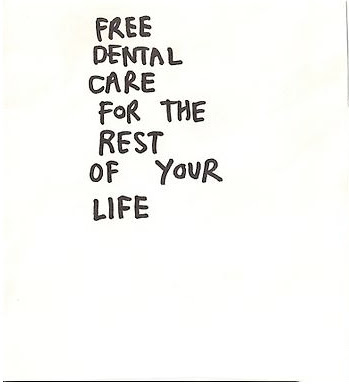 FREE
DENTAL
CARE
FOR THE
REST
OF YOUR
LIFE